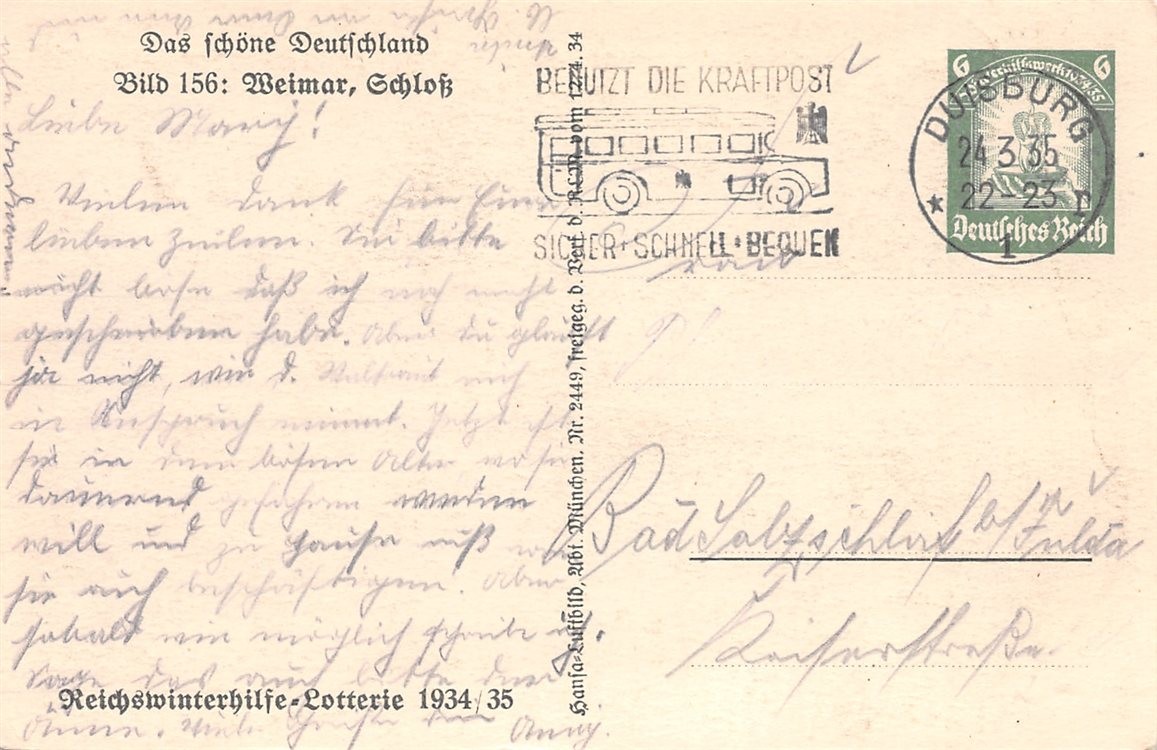 Das schöne Deutschland
Bild 156: Weimar, Schloß
Liebe Marg!
Vielen Dank für Eure
lieben Zeilen. Sei bitte
nicht böse daß ich noch nicht
geschrieben habe. Aber du glaubst
ja nicht, wie d. Waltraut mich
in Anspruch nimmt. Jetzt ist
sie in dem bösen Alter wo sie
dauernd gefahren werden
will und zu Hause muß man
sie auch beschäftigen. Aber
sobald wie möglich schreibe ich.
Sage das auch bitte der
Änne. Viele Grüße
Anny.
Reichswinterhilfe-Lotterie 1934/35
Hansa-Luftbild, Abt. München. Nr. 2449, freigeg. d. Verf. d. RLM. vom 34
BENUTZT DIE KRAFTPOST
SICHER + SCHNELL + BEQUEM
6 6
Winterhilfswerk 1934/35
Deutsches Reich
DUISBURG
24 3 35
22-23
* 1
Bad Salzschlirf b/Fulda
Kaiserstraße.